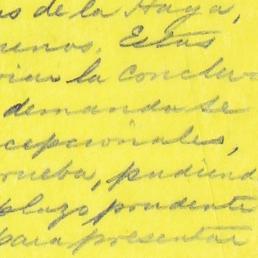 as de la Haya,
unos. Estas
viar la conclu
demanda se
cepcionales,
rueba, pudiend
plazo prudente
para presentar